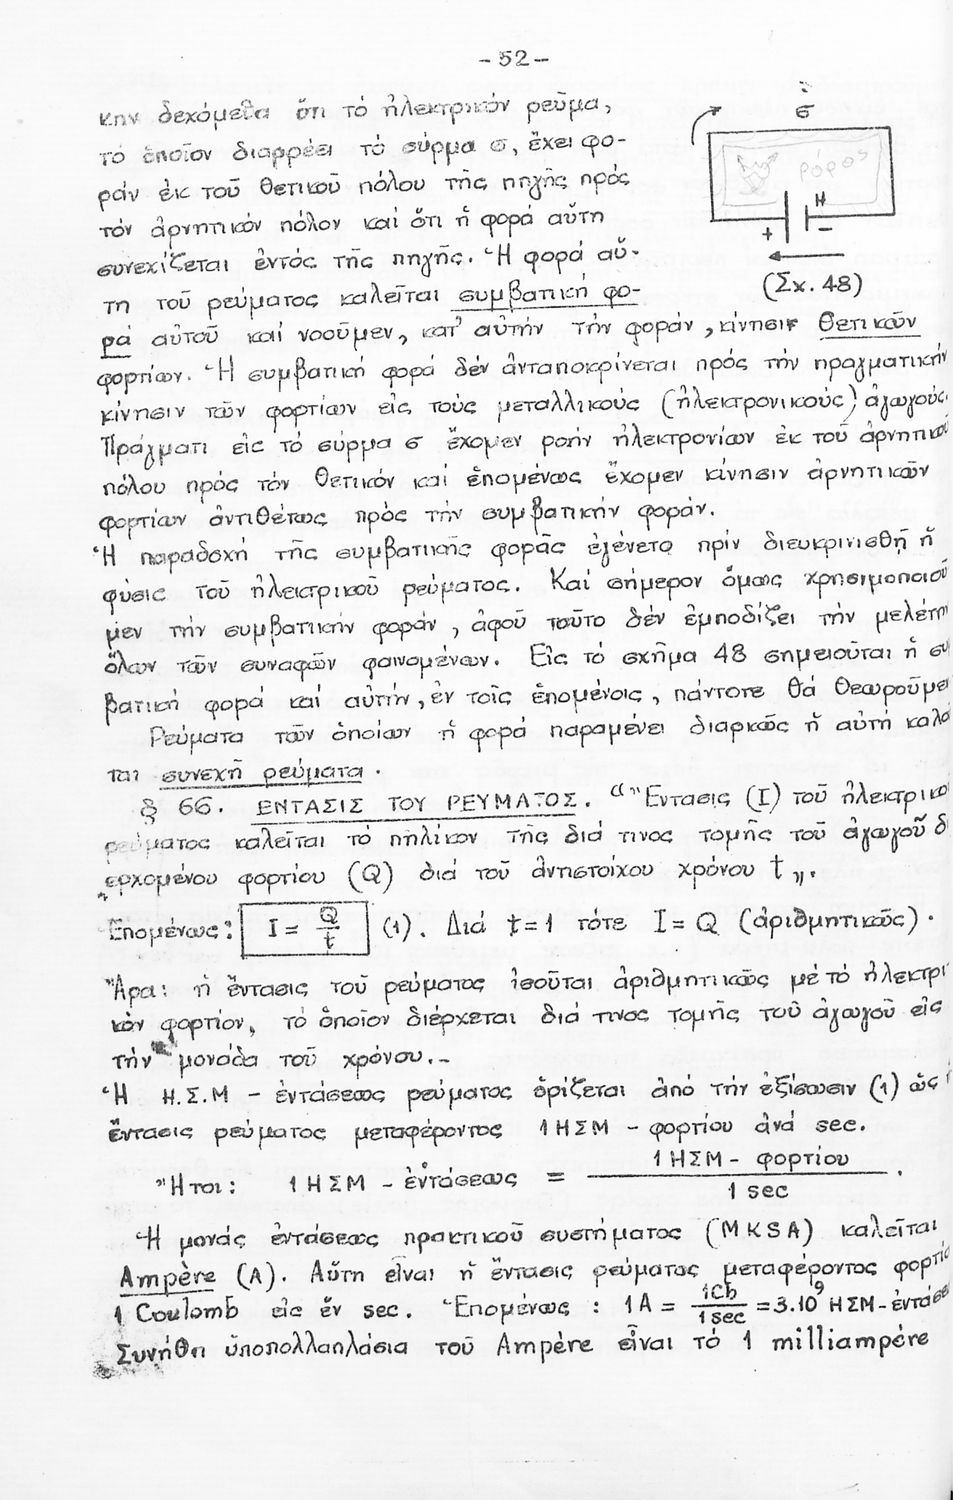 - 52 -
κην δεχόμεθα ὅτι τό ἠλεκτρικόν ρεῦμα,
τό ὁποῖον διαρρέει τό σύρμα σ, ἔχει φο-
ράν ἐκ τοῦ θετικοῦ πόλου τῆς πηγῆς πρός
τόν ἀρνητικόν πόλον καί ὅτι ἡ φορά αὕτη
συνεχίζεται ἐντός τῆς πηγῆς. Ἡ φορά αὕ-
τη τοῦ ρεύματος καλεῖται συμβατική φο-
ρά αὐτοῦ καί νοοῦμεν, κατ' αὐτήν τήν φοράν, κίνησιν θετικῶν
φορτίων. Ἡ συμβατική φορά δέν ἀνταποκρίνεται πρός τήν πραγματικήν
κίνησιν τῶν φορτίων εἰς τούς μεταλλικούς (ἠλεκτρονικούς) ἀγωγούς.
Πράγματι εἰς τό σύρμα σ ἔχομεν ροήν ἠλεκτρονίων ἐκ τοῦ ἀρνητικοῦ
πόλου πρός τόν θετικόν καί ἑπομένως ἔχομεν κίνησιν ἀρνητικῶν
φορτίων ἀντιθέτως πρός τήν συμβατικήν φοράν.
Ἡ παραδοχή τῆς συμβατικῆς φορᾶς ἐγένετο πρίν διευκρινισθῇ ἡ
φύσις τοῦ ἠλεκτρικοῦ ρεύματος. Καί σήμερον ὅμως χρησιμοποιοῦ
μεν τήν συμβατικήν φοράν, ἀφοῦ τοῦτο δέν ἐμποδίζει τήν μελέτην
ὅλων τῶν συναφῶν φαινομένων. Εἰς τό σχῆμα 48 σημειοῦται ἡ συ
βατική φορά καί αὐτήν, ἐν τοῖς ἑπομένοις, πάντοτε θά θεωροῦμεν
Ρεύματα τῶν ὁποίων ἡ φορά παραμένει διαρκῶς ἡ αὐτή καλο
ται συνεχῆ ρεύματα.
§ 66. ΕΝΤΑΣΙΣ ΤΟΥ ΡΕΥΜΑΤΟΣ. "Ἔντασις (Ι) τοῦ ἠλεκτρικο
ρεύματος καλεῖται τό πηλίκον τῆς διά τινος τομῆς τοῦ ἀγωγοῦ δι
ερχομένου φορτίου (Q) διά τοῦ ἀντιστοίχου χρόνου t".
Ἑπομένως: I = Q/t (1). Διά t=1 τότε I = Q (ἀριθμητικῶς).
Ἄρα: ἡ ἔντασις τοῦ ρεύματος ἰσοῦται ἀριθμητικῶς μέ τό ἠλεκτρι
κόν φορτίον, τό ὁποῖον διέρχεται διά τινος τομῆς τοῦ ἀγωγοῦ εἰς
τήν μονάδα τοῦ χρόνου.-
Ἡ Η.Σ.Μ - ἐντάσεως ρεύματος ὁρίζεται ἀπό τήν ἐξίσωσιν (1) ὡς
ἔντασις ρεύματος μεταφέροντος 1 ΗΣΜ - φορτίου ἀνά sec.
Ἤτοι: 1 ΗΣΜ - ἐντάσεως = 1 ΗΣΜ - φορτίου / 1 sec.
Ἡ μονάς ἐντάσεως πρακτικοῦ συστήματος (MKSA) καλεῖται
Ampère (A). Αὕτη εἶναι ἡ ἔντασις ρεύματος μεταφέροντος φορτίο
1 Coulomb εἰς ἕν sec. Ἑπομένως: 1A = 1Cb/1sec = 3.10⁹ ΗΣΜ - ἐντάσε
Συνήθη ὑποπολλαπλάσια τοῦ Ampère εἶναι τό 1 milliampére
σ
ρόρος
Η
+ -
(Σχ. 48)